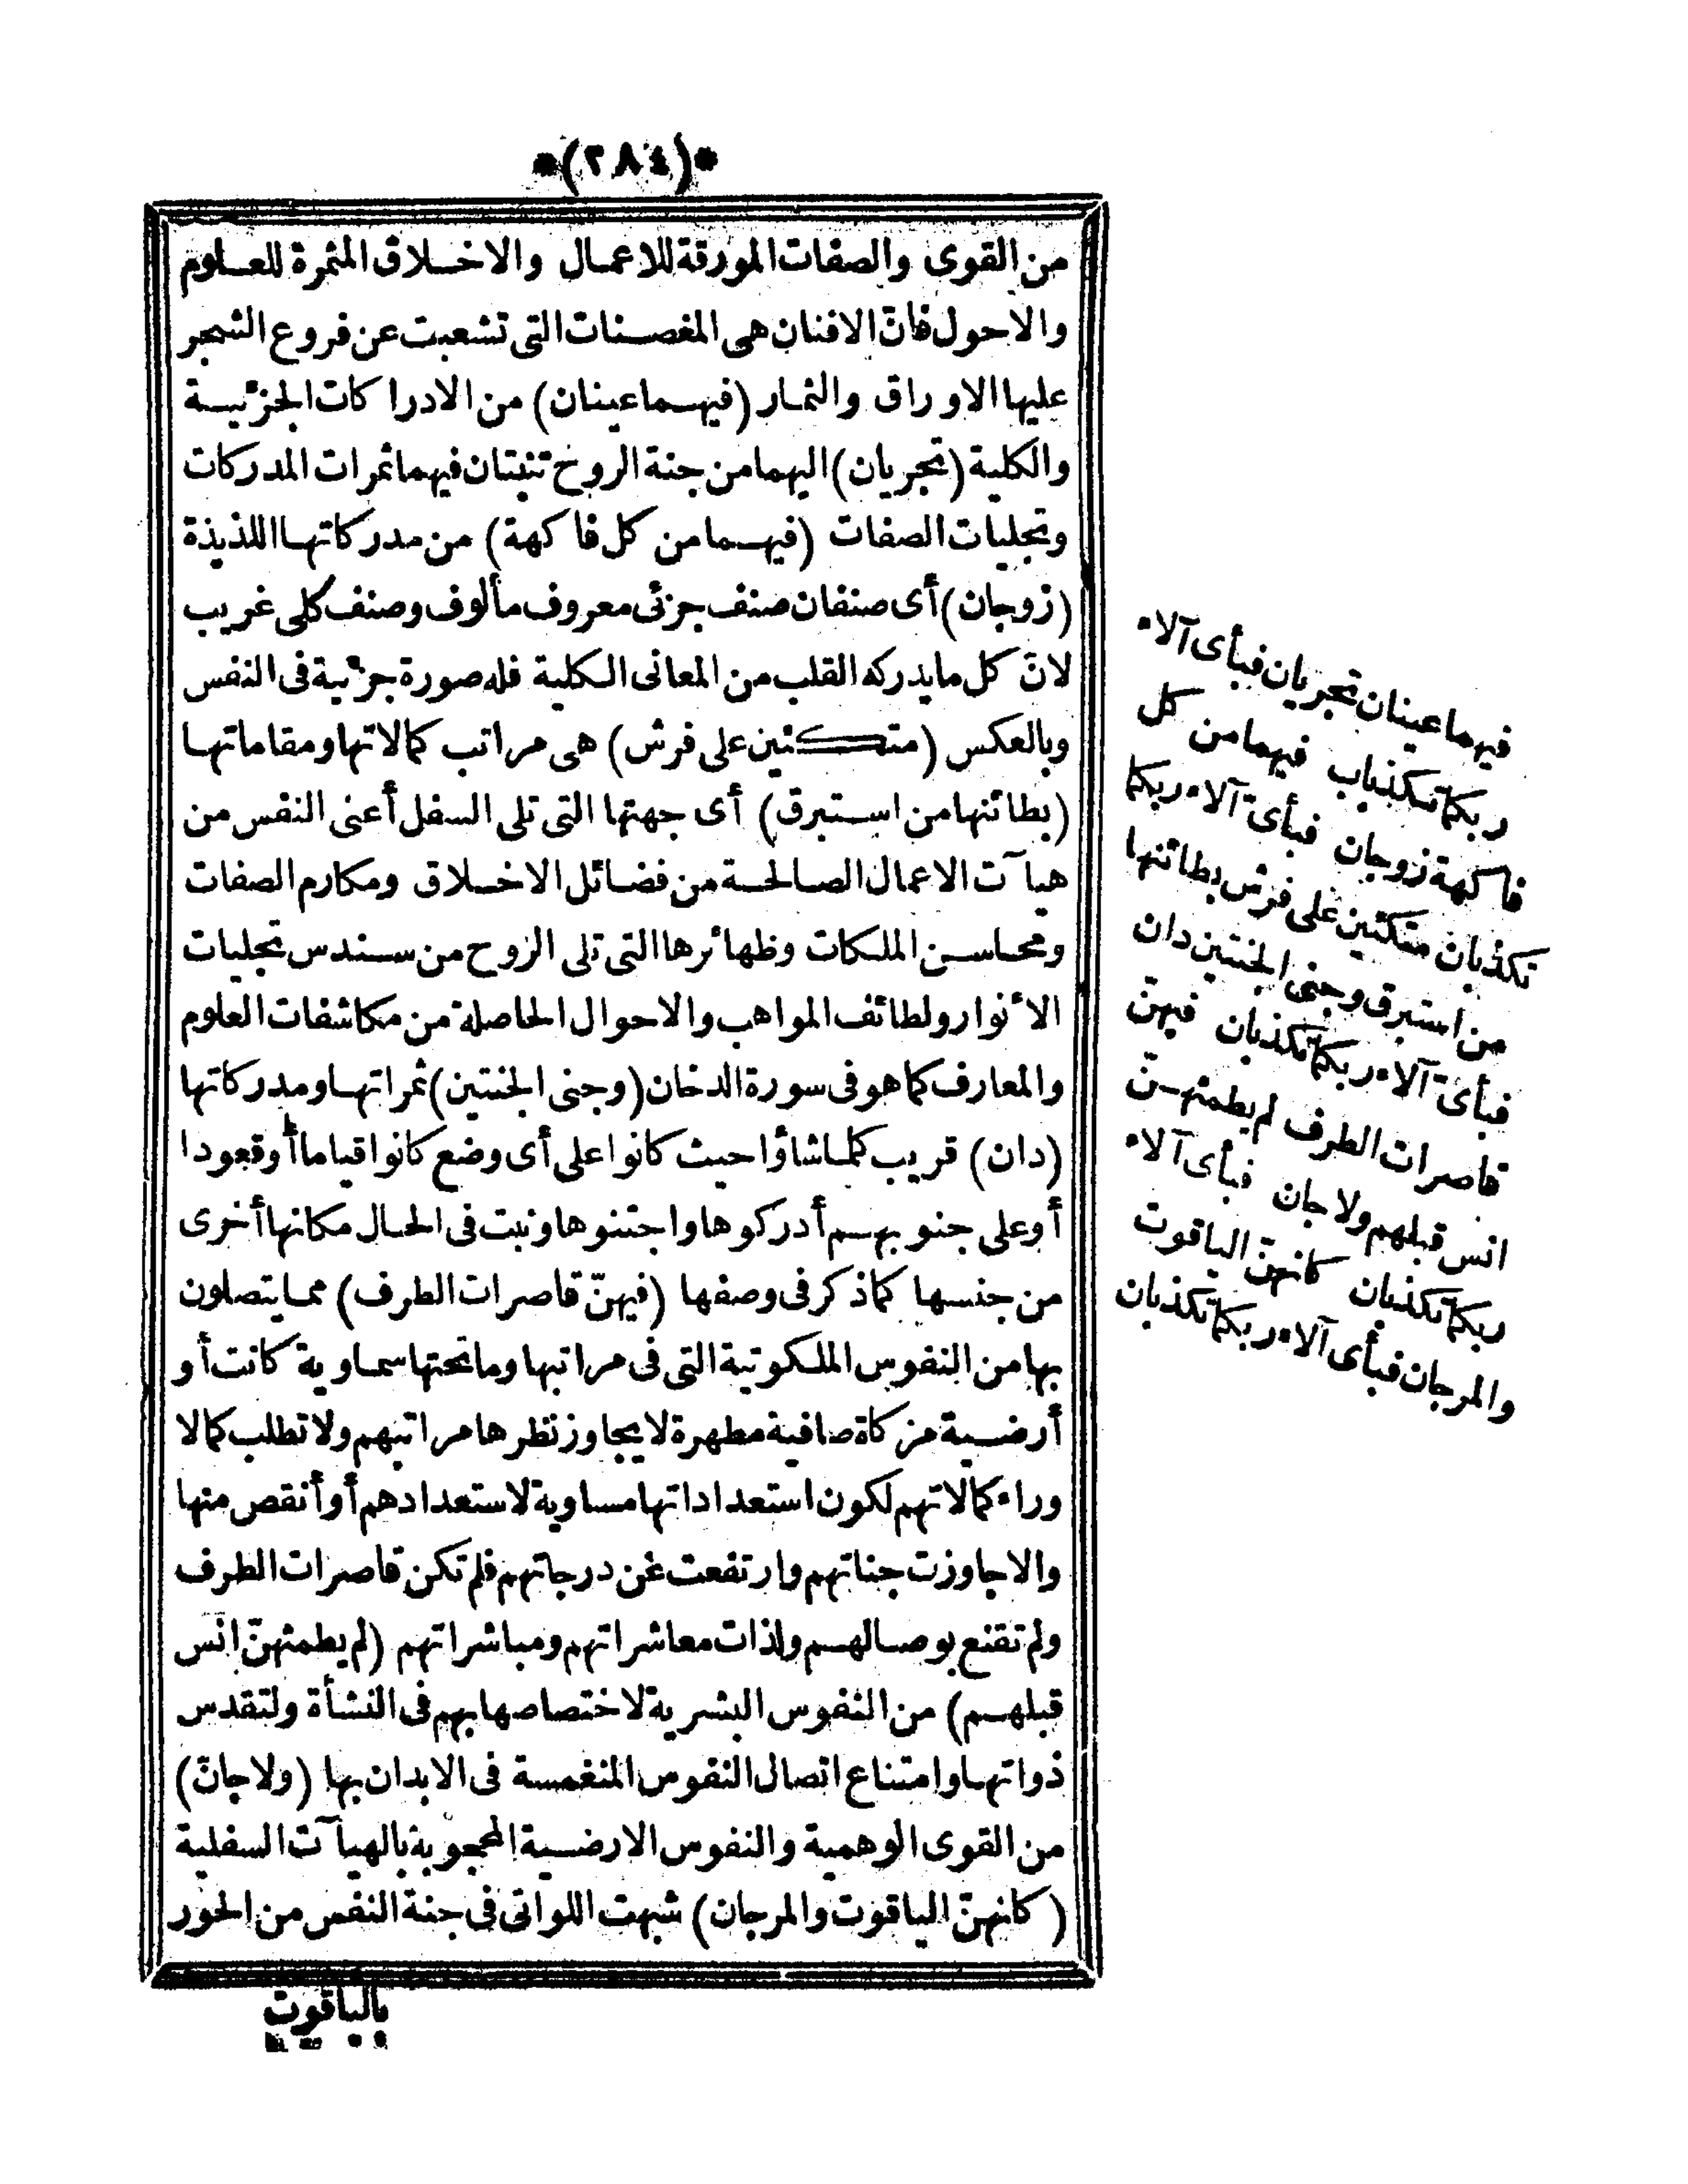 *(٢٨٤)*
من القوى والصفات المورقة للاعمال والاخلاق المثمرة للعلوم
والاحول فانّ الافنان هى المغصنات التى تشعبت عن فروع الشجر
عليها الاوراق والثمار (فيهما عينان) من الادراكات الجزئية
والكلية (تجريان) اليهما من جنة الروح تنبتان فيهما ثمرات المدركات
وتجليات الصفات (فيهما من كل فاكهة) من مدركاتها اللذيذة
(زوجان) أى صنفان صنف جزئى معروف مألوف وصنف كلى غريب
لانّ كل مايدركه القلب من المعانى الكلية فله صورة جزئية فى النفس
وبالعكس (متكئين على فرش) هى مراتب كمالاتها ومقاماتها
(بطائنها من استبرق) أى جهتها التى تلى السفل أعنى النفس من
هيآت الاعمال الصالحة من فضائل الاخلاق ومكارم الصفات
ومحاسن الملكات وظهائرها التى تلى الروح من سندس تجليات
الأنوار ولطائف المواهب والاحوال الحاصلة من مكاشفات العلوم
والمعارف كما هو فى سورة الدخان (وجنى الجنتين) ثمراتها ومدركاتها
(دان) قريب كلما شاؤا حيث كانوا على أى وضع كانوا قياما أو قعودا
أو على جنوبهم أدركوها واجتنوها ونبت فى الحال مكانها أخرى
من جنسها كما ذكر فى وصفها (فيهنّ قاصرات الطرف) مما يتصلون
بها من النفوس الملكوتية التى فى مراتبها وما تحتها سماوية كانت أو
أرضية مزكاة صافية مطهرة لا يجاوز نظرها مراتبهم ولا تطلب كمالا
وراء كمالاتهم لكون استعداداتها مساوية لاستعدادهم أو أنقص منها
والا جاوزت جناتهم وارتفعت عن درجاتهم فلم تكن قاصرات الطرف
ولم تقنع بوصالهم ولذات معاشراتهم ومباشراتهم (لم يطمثهنّ انس
قبلهم) من النفوس البشرية لاختصاصها بهم فى النشأة ولتقدس
ذواتها وامتناع اتصال النفوس المنغمسة فى الابدان بها (ولا جانّ)
من القوى الوهمية والنفوس الارضية المحجوبة بالهيآت السفلية
(كانهنّ الياقوت والمرجان) شبهت اللواتى فى جنة النفس من الحور
بالياقوت
فيهما عينان تجريان فبأى آلاء
ربكما تكذبان فيهما من كل
فاكهة زوجان فبأىّ آلاء ربكما
تكذبان متكئين على فرش بطائنها
من استبرق وجنى الجنتين دان
فبأىّ آلاء ربكما تكذبان فيهنّ
قاصرات الطرف لم يطمثهنّ
انس قبلهم ولا جان فبأى آلاء
ربكما تكذبان كانهنّ الياقوت
والمرجان فبأى آلاء ربكما تكذبان